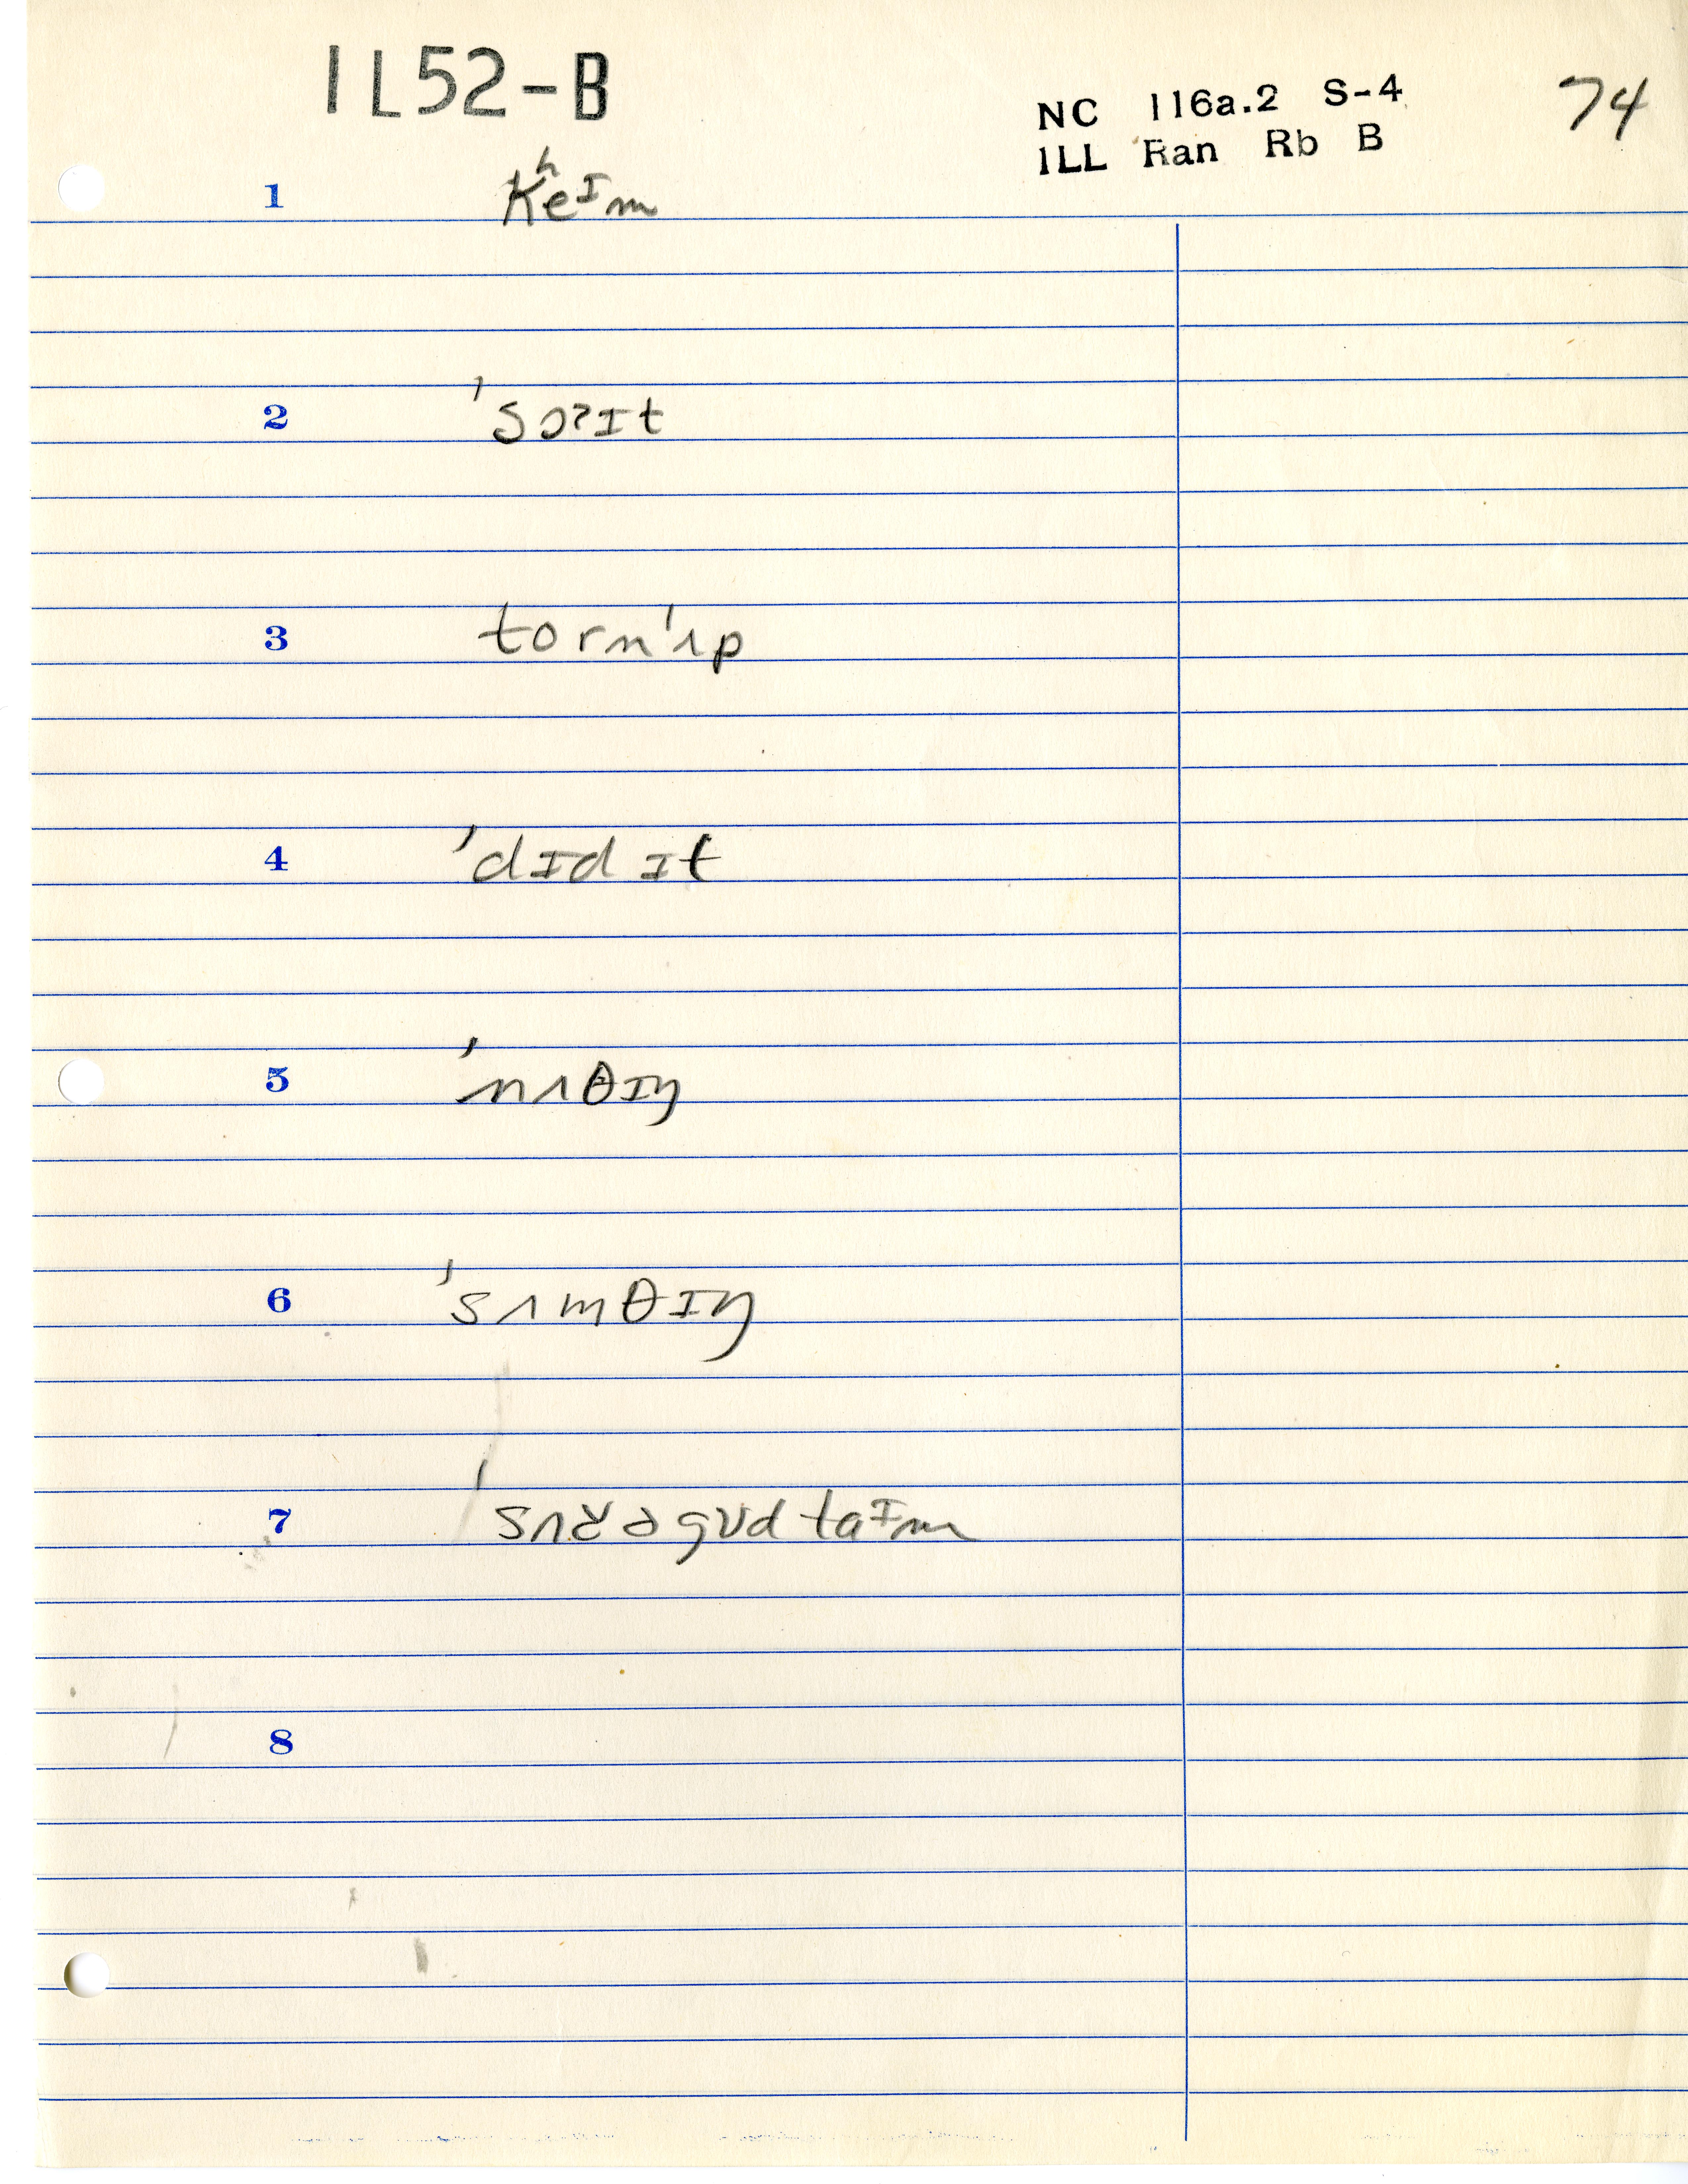 1L52-B
NC 116a.2 S-4 74
ILL Ran Rb B
1 kʰeᴵm
2 'sɔʔɪt
3 torn'ʌp
4 'dɪd ɪt
5 'nʌθɪŋ
6 'sʌmθɪŋ
7 gʊd taᴵm
8